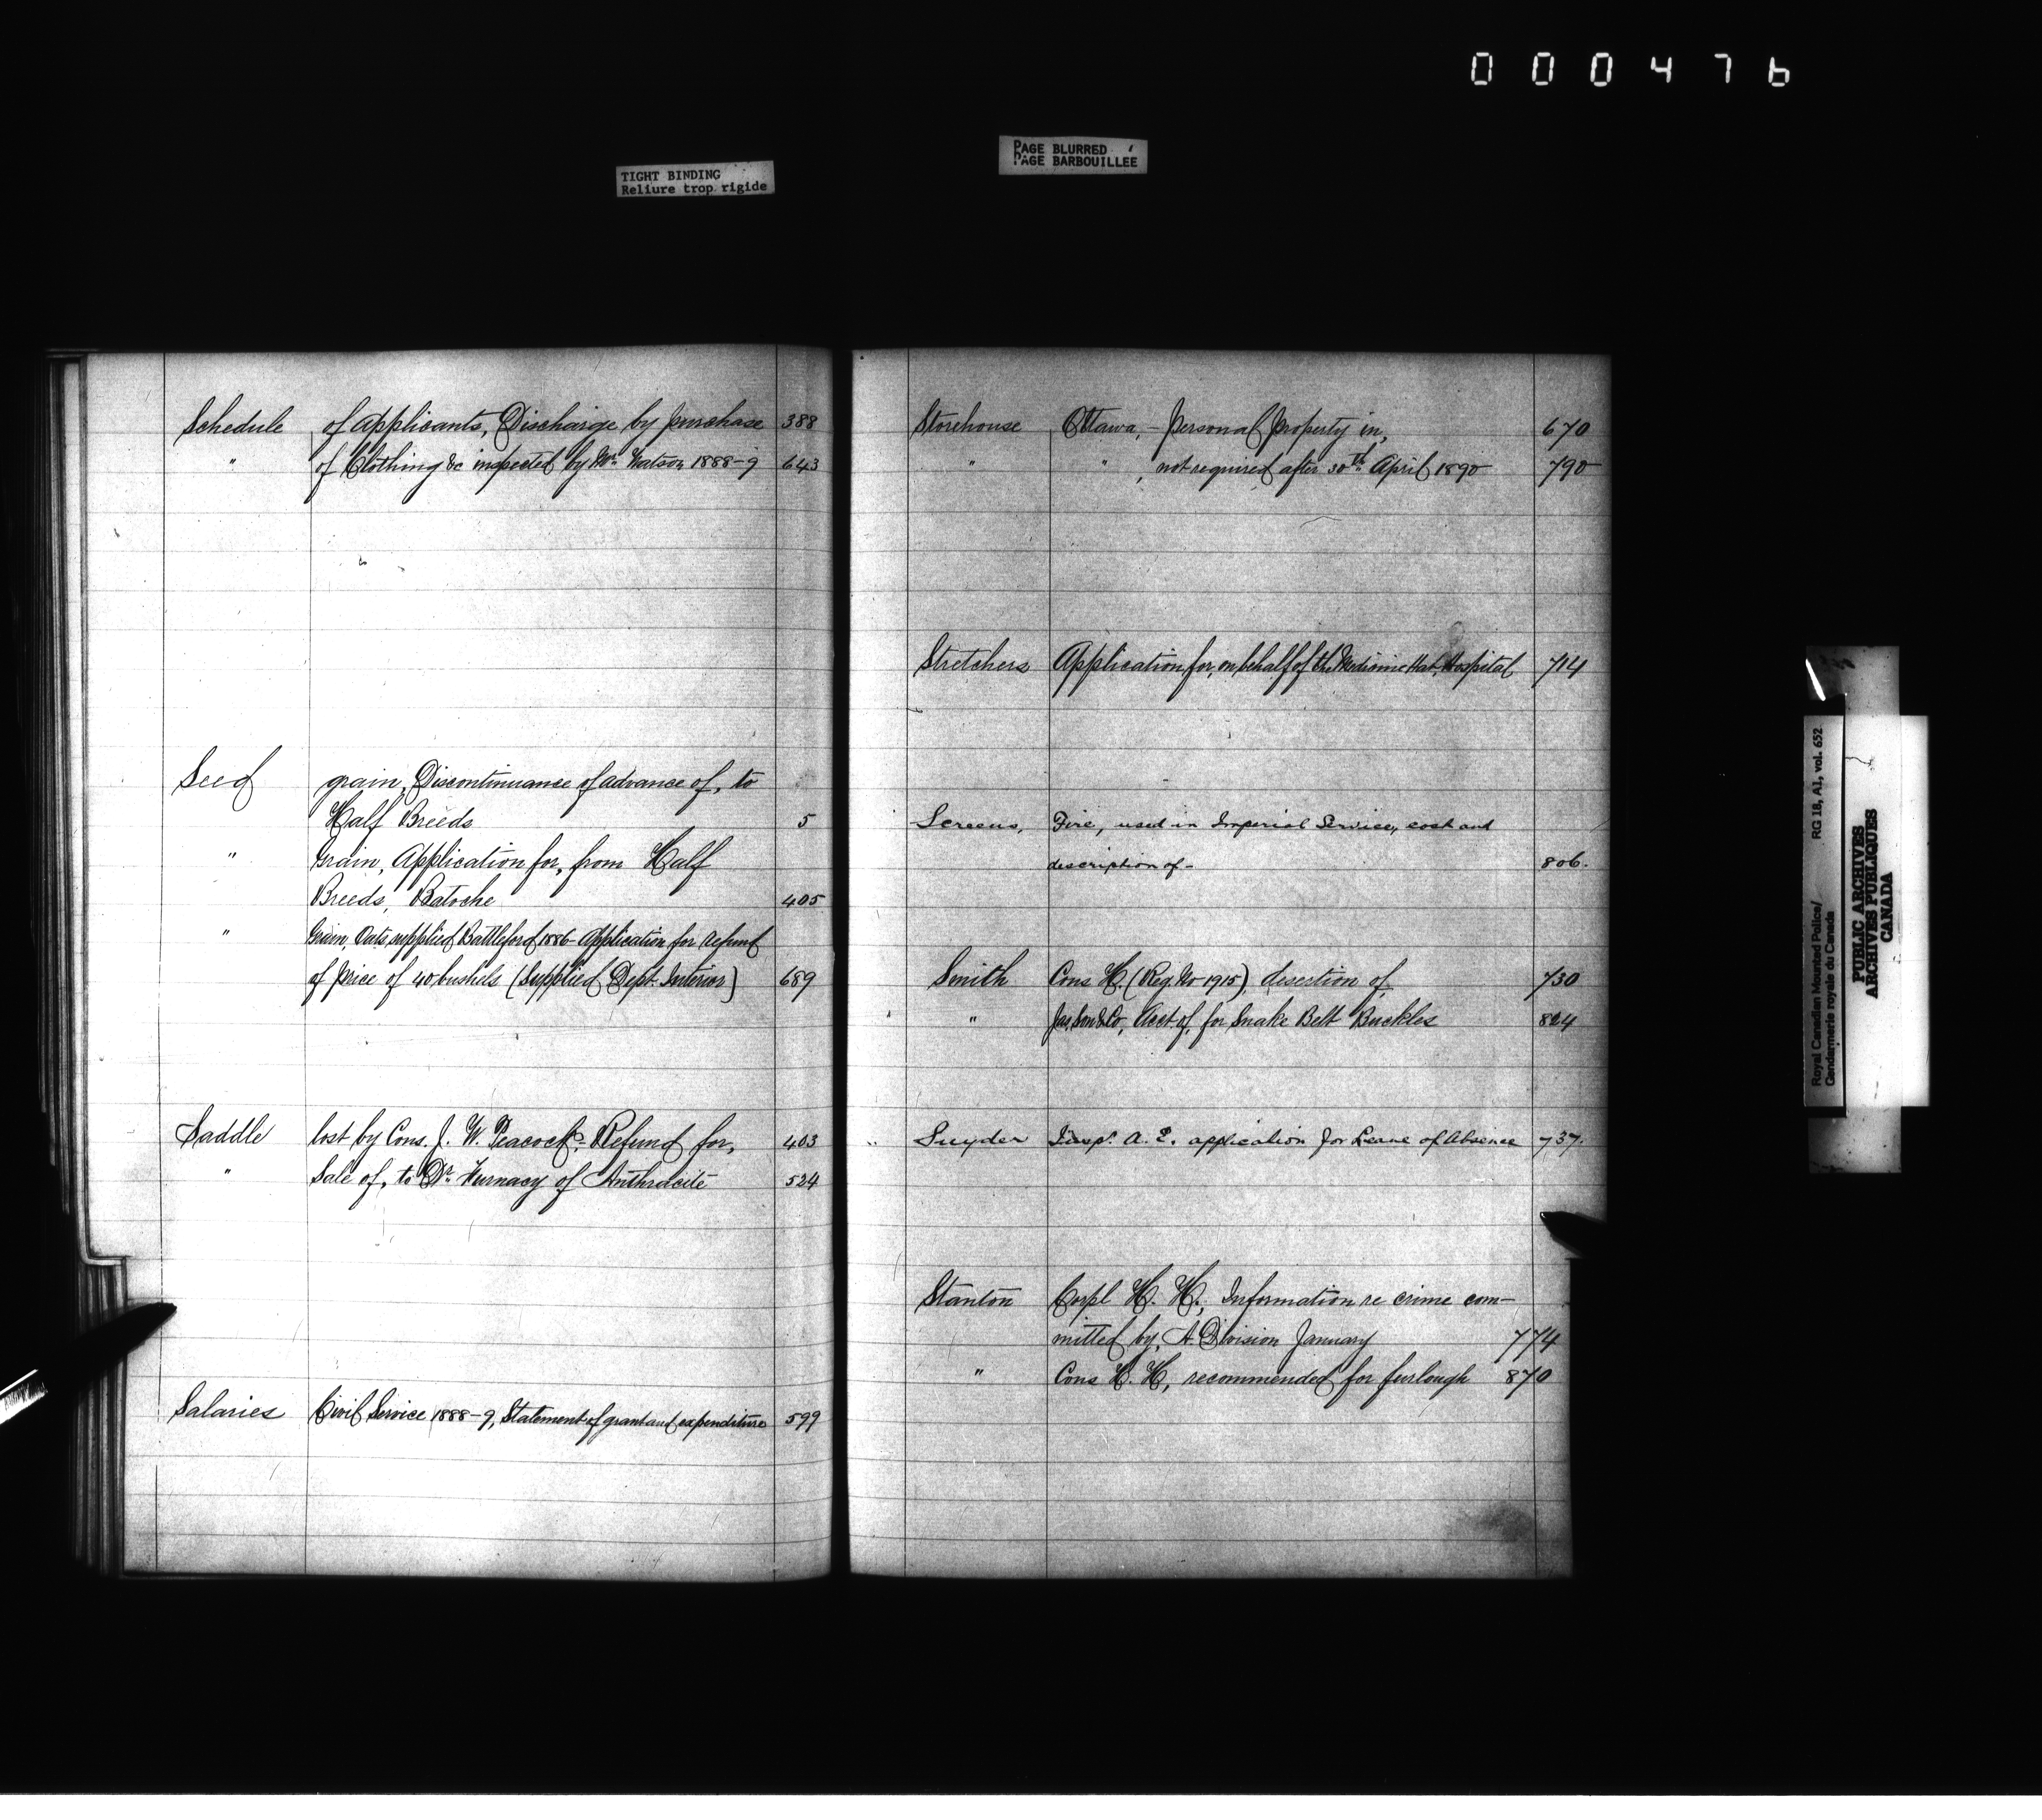 000476
TIGHT BINDING
Reliure trop rigide
PAGE BLURRED
PAGE BARBOUILLÉE
Schedule of applicants, Discharge by purchase 388
" of Clothing &c inspected by Mr. Watson 1888-9 643
Seed grain, Discontinuance of advance of, to
Half Breeds 5
" Grain, Application for, from Half
Breeds, Batoche 405
" Grain, Oats, supplied Battleford 1886- Application for refund
of price of 40 bushels (Supplied Dept. Interior) 689
Saddle lost by Cons. J. W. Peacock, Refund for, 403
" Sale of, to Dr. of Anthracite 524
Salaries Civil Service 1888-9, Statement of grant and expenditure 599
Storehouse Ottawa, - Personal property in, 670
" " , not required after 30th April 1890 790
Stretchers Application for, on behalf of the Medicine Hat Hospital 714
Screens, Fire, used in Imperial Service, cost and
description of - 806.
Smith Cons H. (Reg. No 1915), desertion of, 730
" Jas, Son & Co, Acct of, for Snake Belt Buckles 824
Snyder Insp. A. E. application for Leave of Absence 737.
Stanton Corpl H. H., Information re crime com-
mitted by, A Division January 774
" Cons H. H, recommended for furlough 870
Royal Canadian Mounted Police/
Gendarmerie royale du Canada
RG 18, A1, vol. 652
PUBLIC ARCHIVES
ARCHIVES PUBLIQUES
CANADA